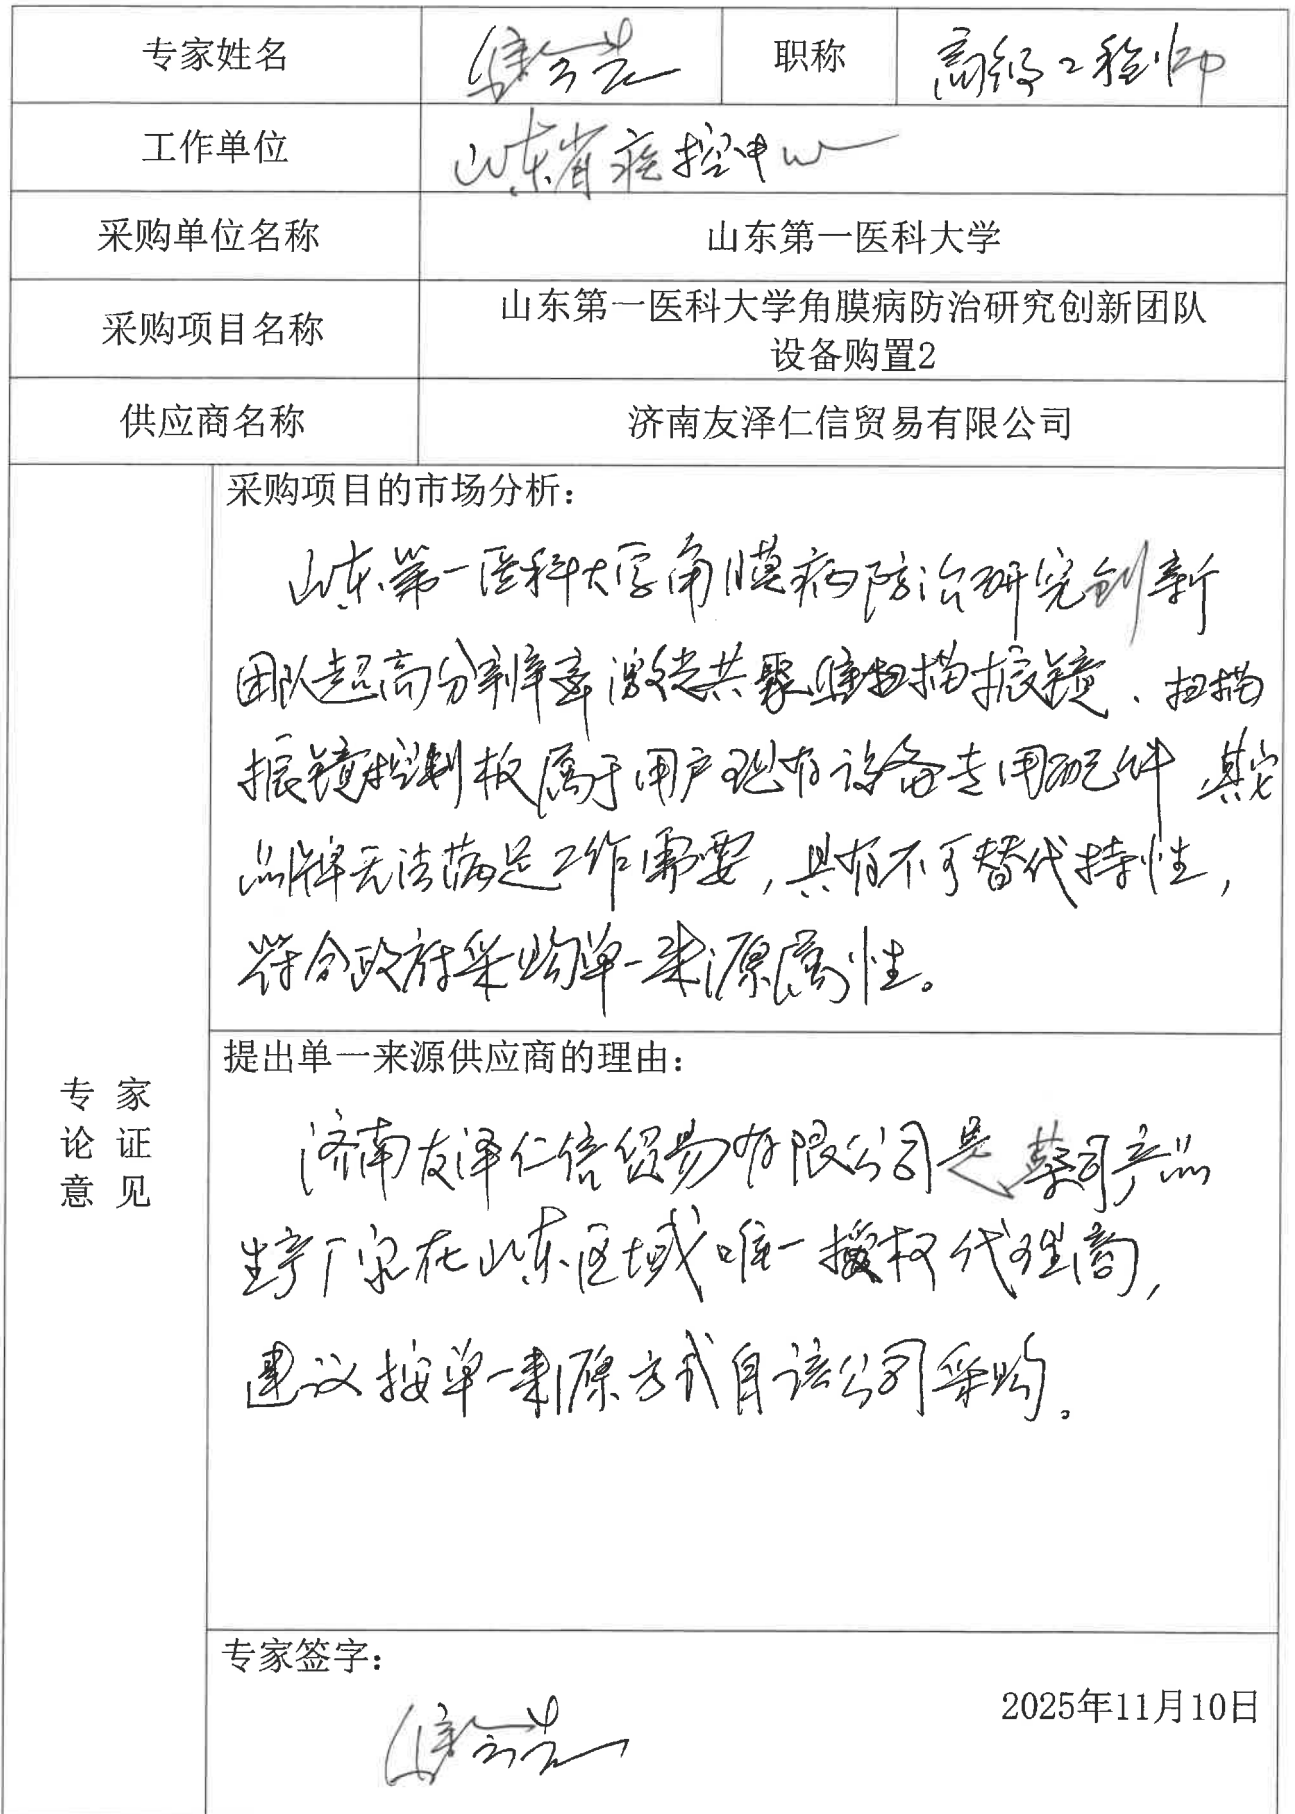 专家姓名 职称 高级工程师
工作单位 山东省疾控中心
采购单位名称 山东第一医科大学
采购项目名称 山东第一医科大学角膜病防治研究创新团队
设备购置2
供应商名称 济南友泽仁信贸易有限公司
采购项目的市场分析：
山东第一医科大学角膜病防治研究创新
团队超高分辨率激光共聚焦扫描振镜、扫描
振镜控制板属于用户现有设备专用配件，其它
品牌无法满足工作需要，具有不可替代特性，
符合政府采购单一来源属性。
专家
论证
意见
提出单一来源供应商的理由：
济南友泽仁信贸易有限公司是蔡司产品
生产厂家在山东区域唯一授权代理商，
建议按单一来源方式自该公司采购。
专家签字：
2025年11月10日